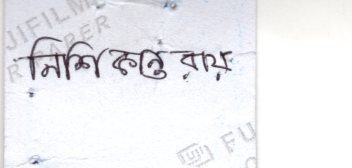 নিশি কান্ত রায়
JIFILM
R PAPER
FU